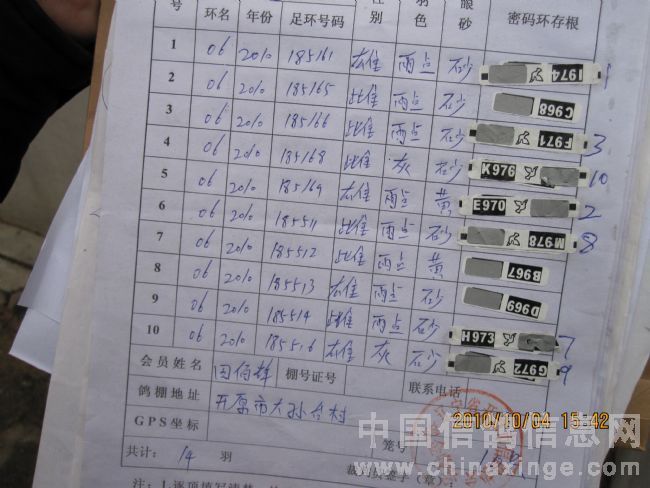 号 环名 年份 足环号码 性别 羽色 眼砂 密码环存根
1 06 2010 185161 雄 雨点 砂 I974 1
2 06 2010 185165 雌 雨点 砂 C968
3 06 2010 185166 雌 雨点 砂 F971 3
4 06 2010 185168 雌 灰 砂 K976 10
5 06 2010 185169 雄 雨点 黄 E970 2
6 06 2010 185511 雌 雨点 砂 M978 8
7 06 2010 185512 雌 雨点 黄 B967
8 06 2010 185513 雄 雨点 砂 D969
9 06 2010 185514 雌 雨点 砂 H973 7
10 06 2010 185516 雄 灰 砂 G972 9
会员姓名 田伯辉 棚号证号 联系电话
鸽棚地址 开原市大孙台村
GPS坐标 笼号
共计: 14 羽 裁判员签字(章):
注:1.逐项填写清楚
2010/10/04 15:42
中国信鸽信息网
www.chinaxinge.com